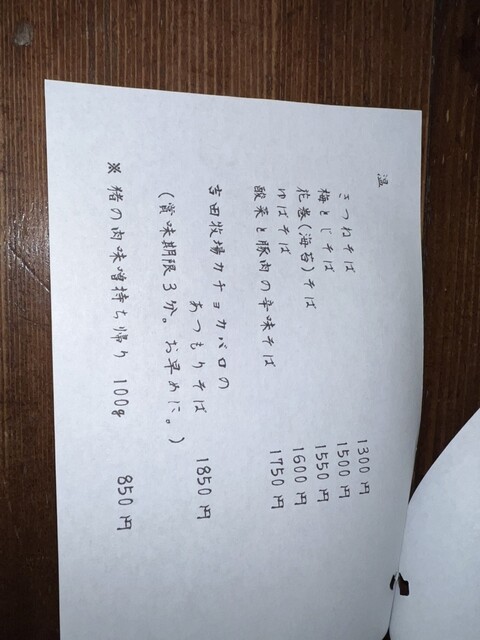 温
きつねそば 1300円
梅とじそば 1500円
花巻(海苔)そば 1550円
ゆばそば 1600円
酸菜と豚肉の辛味そば 1750円
吉田牧場カチョカバロの
あつもりそば 1850円
(賞味期限3分。お早めに。)
※猪の肉味噌持ち帰り 100g 850円